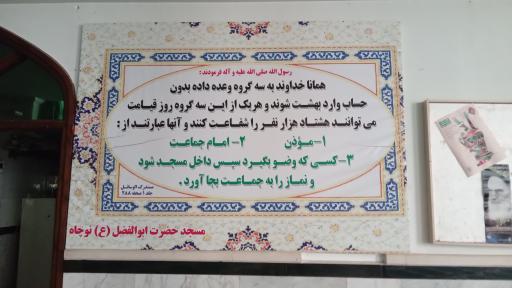 رسول الله صلی الله علیه و آله فرمودند:
همانا خداوند به سه گروه وعده داده بدون
حساب وارد بهشت شوند و هریک از این سه گروه روز قیامت
می توانند هشتاد هزار نفر را شفاعت کنند و آنها عبارتند از:
۱-مؤذن ۲- امام جماعت
۳-کسی که وضو بگیرد سپس داخل مسجد شود
و نماز را به جماعت بجا آورد.
مستدرک الوسائل
جلد ۱ صفحه ۴۸۸
مسجد حضرت ابوالفضل (ع) نوجاه